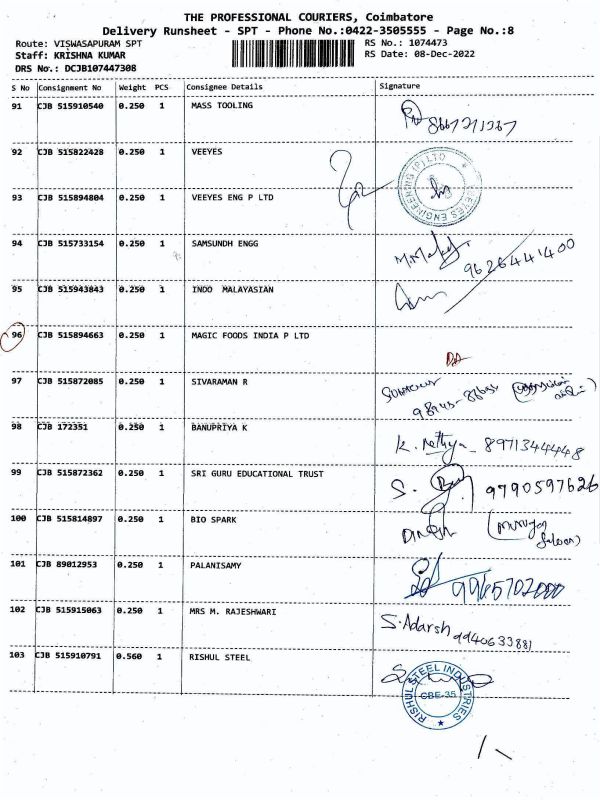 THE PROFESSIONAL COURIERS, Coimbatore
Delivery Runsheet - SPT - Phone No.:0422-3505555 - Page No.:8
Route: VISWASAPURAM SPT RS No.: 1074473
Staff: KRISHNA KUMAR RS Date: 08-Dec-2022
DRS No.: DCJB107447308
S No Consignment No Weight PCS Consignee Details Signature
91 CJB 515910540 0.250 1 MASS TOOLING
92 CJB 515822428 0.250 1 VEEYES
93 CJB 515894804 0.250 1 VEEYES ENG P LTD
VEEYES ENGINEERING (P) LTD
94 CJB 515733154 0.250 1 SAMSUNDH ENGG
9626441400
95 CJB 515943843 0.250 1 INDO MALAYASIAN
96 CJB 515894663 0.250 1 MAGIC FOODS INDIA P LTD
97 CJB 515872085 0.250 1 SIVARAMAN R
98 CJB 172351 0.250 1 BANUPRIYA K
K. Nethya - 8971344448
99 CJB 515872362 0.250 1 SRI GURU EDUCATIONAL TRUST
S. 9790597626
100 CJB 515814897 0.250 1 BIO SPARK
101 CJB 89012953 0.250 1 PALANISAMY
9965702000
102 CJB 515915063 0.250 1 MRS M. RAJESHWARI
S. Adarsh 9940633881
103 CJB 515910791 0.560 1 RISHUL STEEL
RISHUL STEEL INDUSTRIES
CBE-35